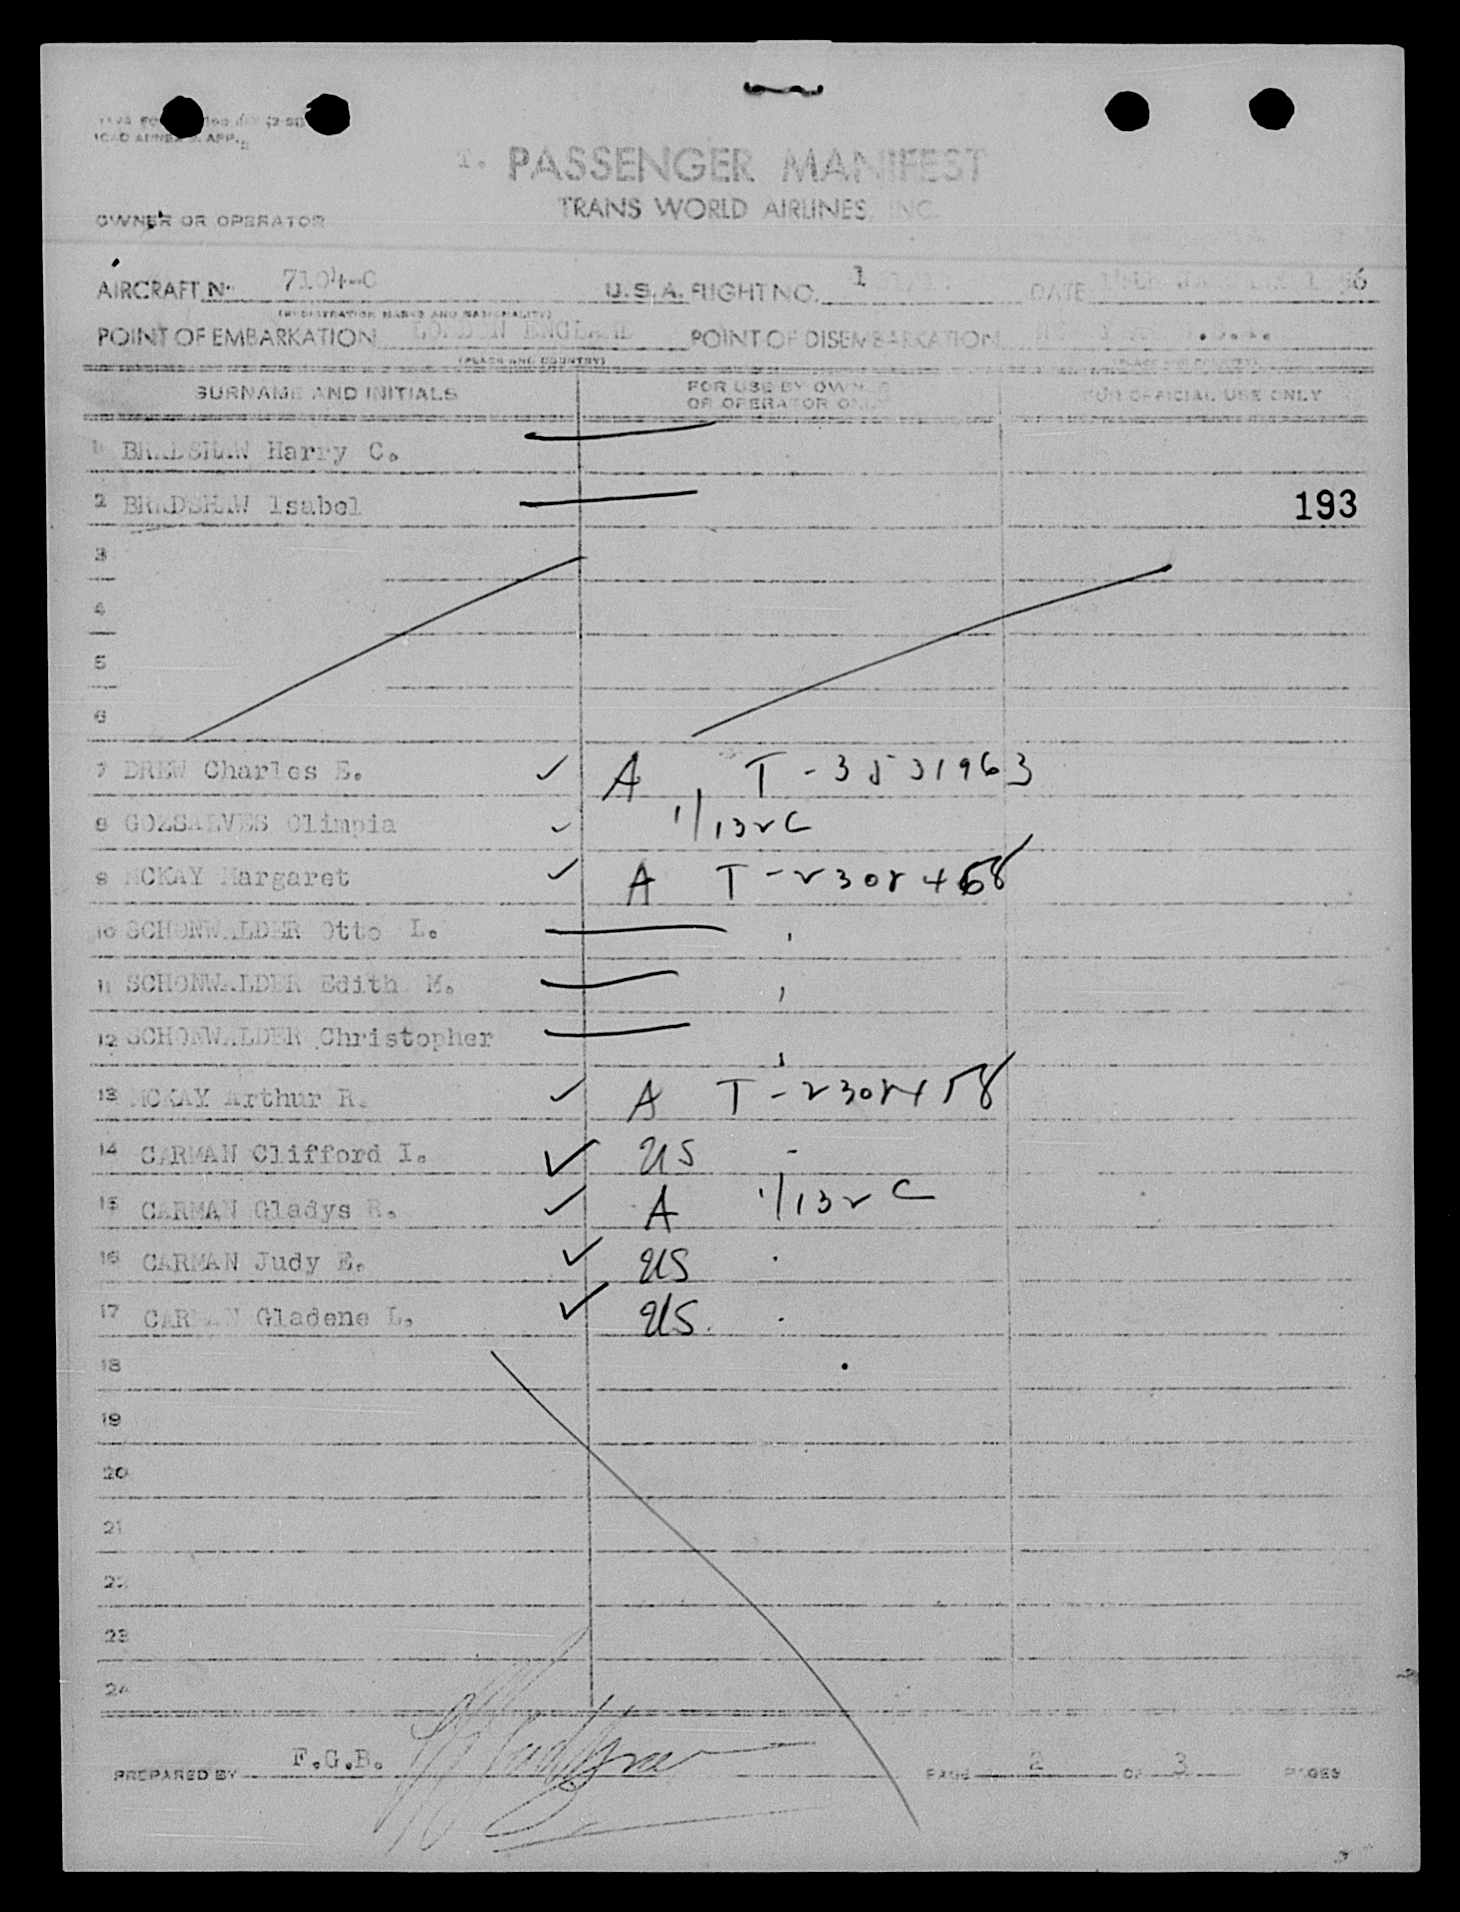 ICAO ANNEX 9. APP.
T. PASSENGER MANIFEST
TRANS WORLD AIRLINES, INC.
OWNER OR OPERATOR
AIRCRAFT No. 7104-C U.S.A. FLIGHT NO. DATE
(REGISTRATION MARKS AND NATIONALITY)
POINT OF EMBARKATION LONDON ENGLAND POINT OF DISEMBARKATION
(PLACE AND COUNTRY) (PLACE AND COUNTRY)
SURNAME AND INITIALS FOR USE BY OWNER OR OPERATOR ONLY FOR OFFICIAL USE ONLY
1 BRADSHAW Harry C.
2 BRADSHAW Isabel 193
3
4
5
6
7 DREW Charles E. ✓ A T-3531963
8 GOZSALVES Olimpia ✓ 1/132C
9 MCKAY Margaret ✓ A
10 SCHONWALDER Otto L.
11 SCHONWALDER Edith M.
12 SCHONWALDER Christopher
13 MCKAY Arthur R. ✓ A
14 CARMAN Clifford I. ✓ US -
15 CARMAN Gladys R. ✓ A 1/132 C
16 CARMAN Judy E. ✓ US
17 CARMAN Gladene L. ✓ US.
18
19
20
21
22
23
24
PREPARED BY F.G.B. PAGE 2 OF 3 PAGES